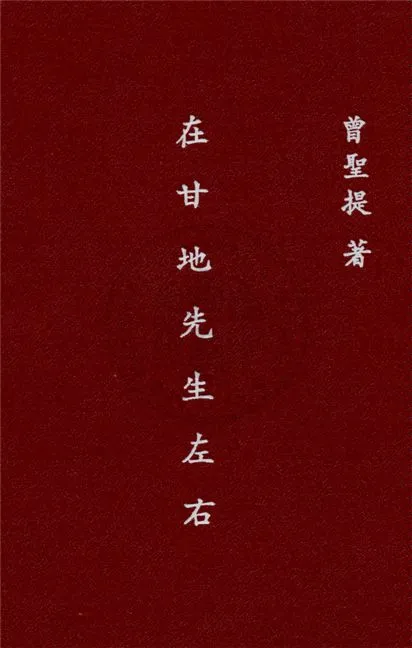 曾聖提 著
在甘地先生左右